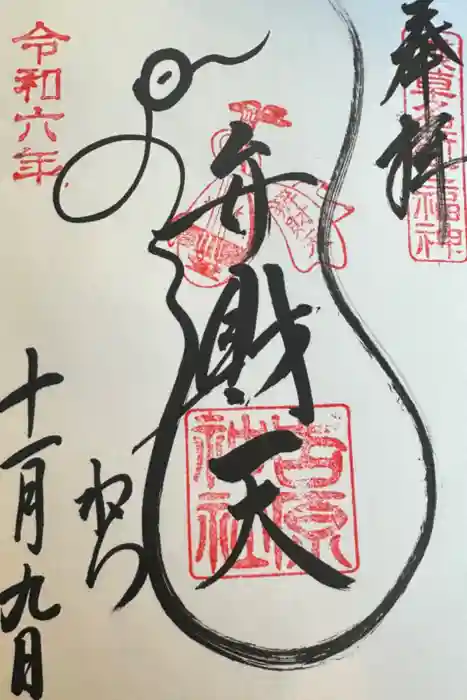 奉拝
浅草名所七福神
弁財天
吉原神社
令和六年
十一月九日